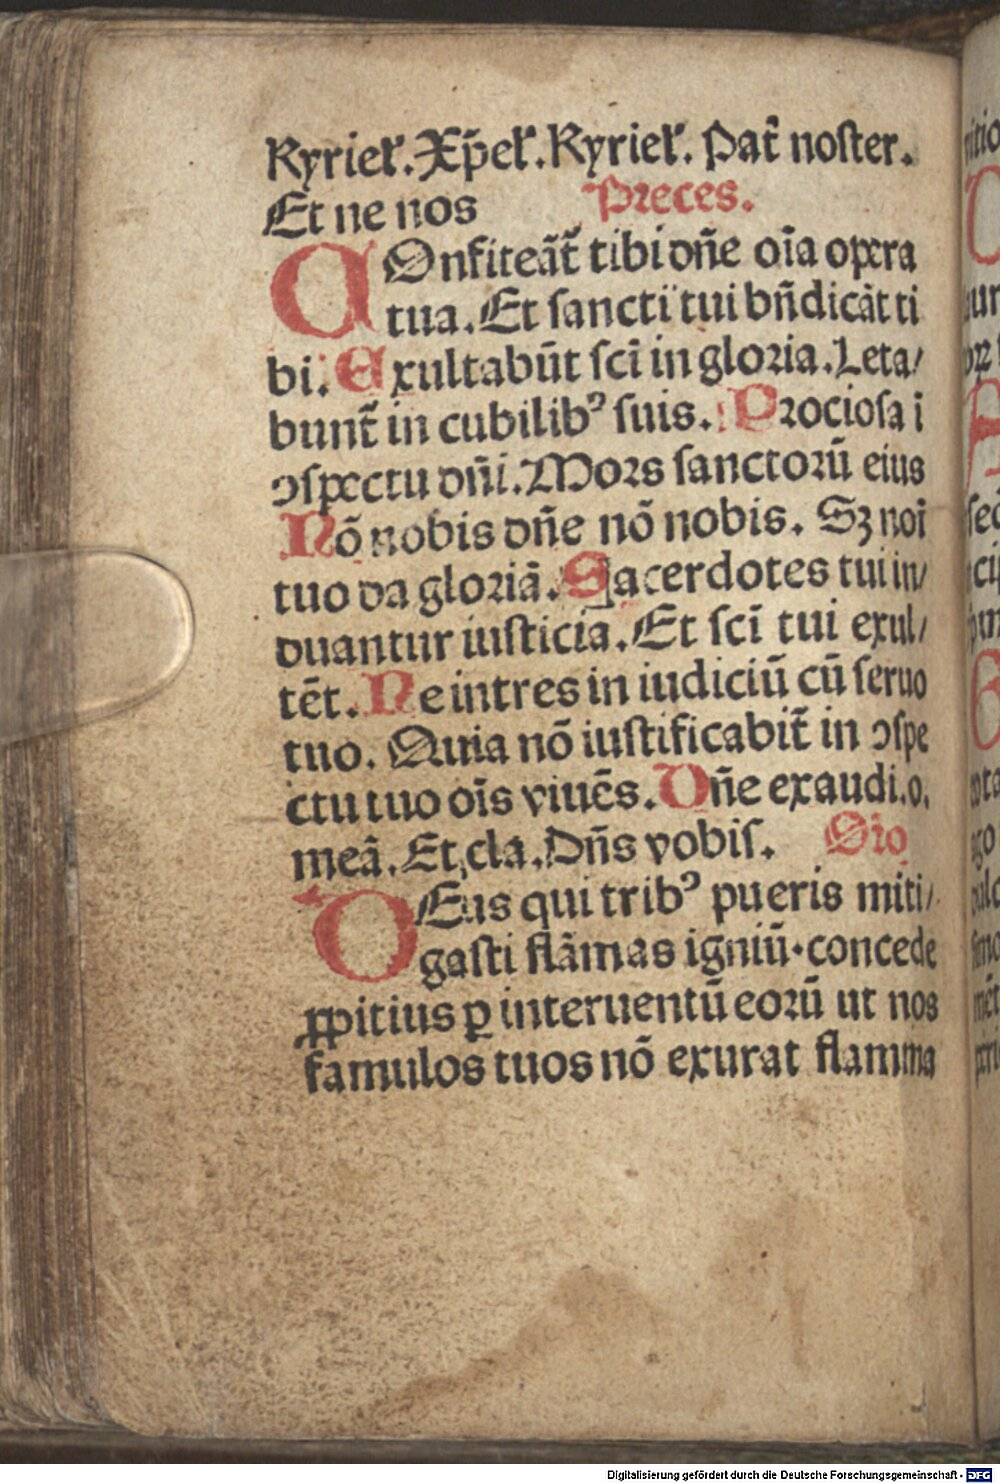 Kyriel̃. Xp̃el̃. Kyriel̃. Pat̃ noster.
Et ne nos Preces.
COnfiteãt̃ tibi dñe oĩa opera
tua. Et sancti tui bñdicãt ti
bi. Exultabũt scĩ in gloria. Leta/
bunt̃ in cubilibꝰ suis. Prociosa ĩ
ↄspectu dñi. Mors sanctorũ eius
Nõ nobis dñe nõ nobis. Sꝫ noĩ
tuo da gloriã. Sacerdotes tui in/
duantur iusticia. Et scĩ tui exul/
tẽt. Ne intres in iudiciũ cũ seruo
tuo. Quia nõ iustificabit̃ in ↄspe
ctu tuo oĩs viuẽs. Dñe exaudi. o.
meã. Et cla. Dñs vobis. Oĩo
DEus qui tribꝰ pueris miti/
gasti flãmas igniũ·concede
ꝓpitius ꝑ interuentũ eorũ ut nos
famulos tuos nõ exurat flamma
Digitalisierung gefördert durch die Deutsche Forschungsgemeinschaft - DFG